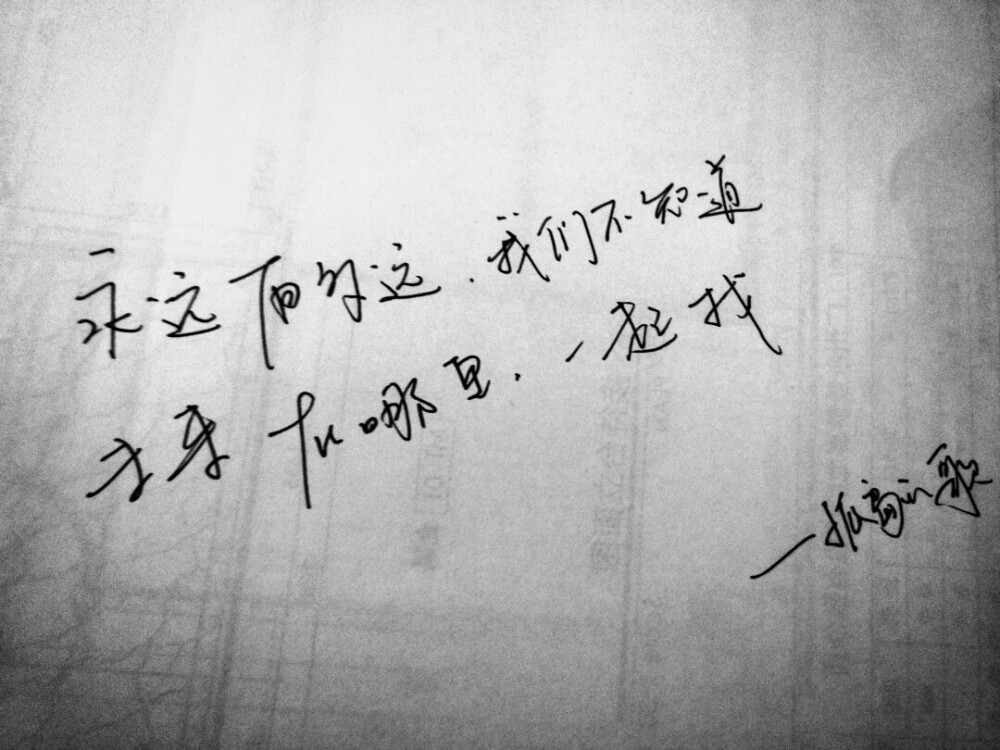 永远有多远.我们不知道
未来在哪里.一起找
—孤寓的歌